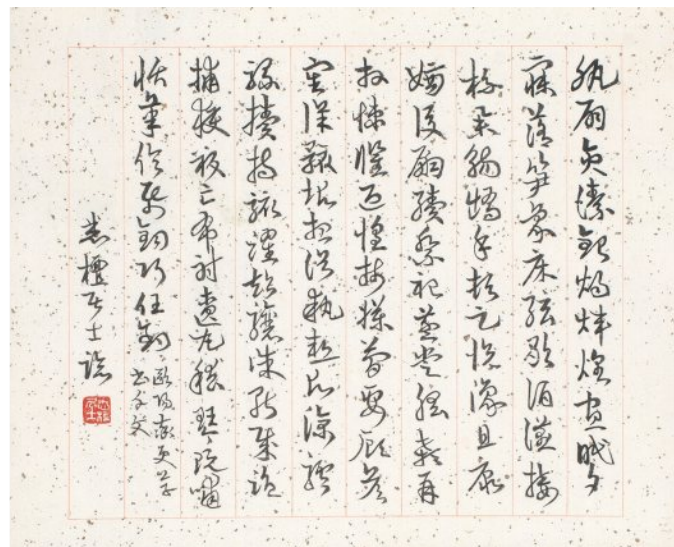 紈扇員潔銀燭煒煌晝眠夕
寐藍筍象床弦歌酒讌接
杯舉觴矯手頓足悅豫且康
嫡後嗣續祭祀蒸嘗稽顙再
拜悚懼恐惶牋牒簡要顧答
審詳骸垢想浴執熱願涼驢
騾犢特駭躍超驤誅斬賊盜
捕獲叛亡布射遼丸嵇琴阮嘯
恬筆倫紙鈞巧任釣 歐陽率更草
書千文
居士臨